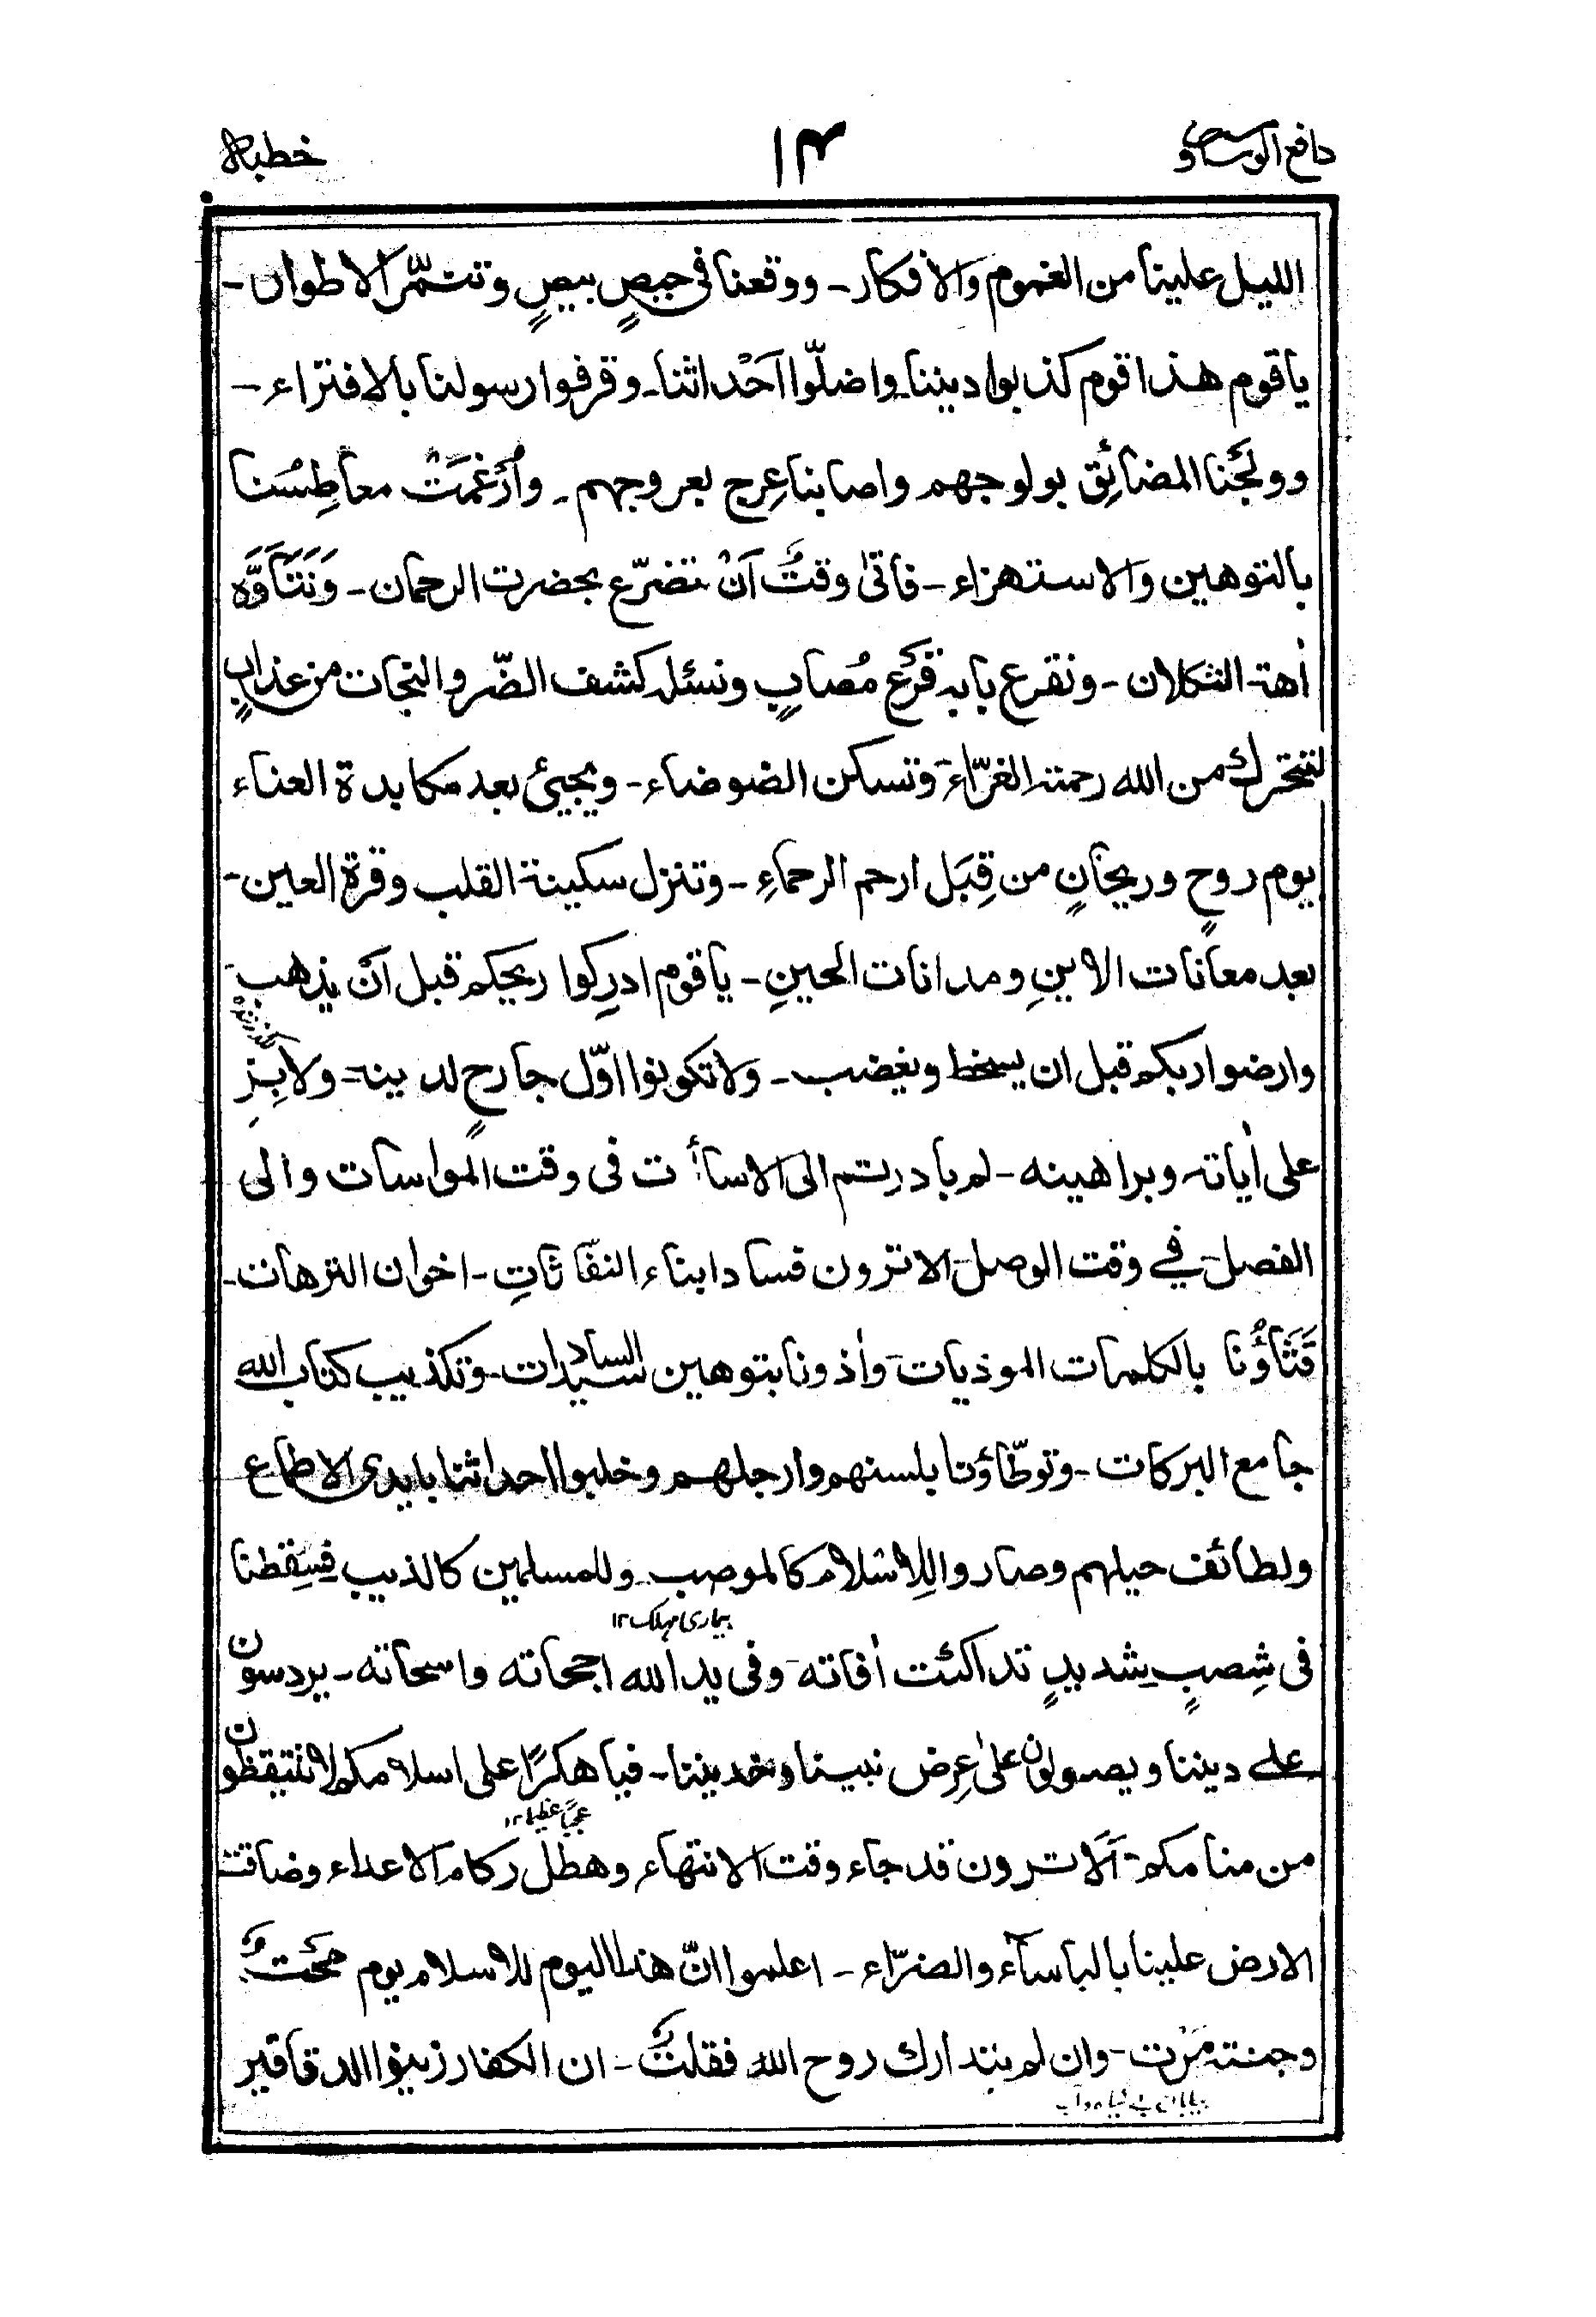 دافع الوساوس ۱۴ خطبه
الليل علينا من الغموم والافكار- ووقعنا فى حيصٍ بيصٍ وتنتمّر الاطوار-
ياقوم هذا قوم كذبوا ديننا۔ واضلّوا اَحْداثنا۔ وقرفوا رسولنا بالافتراء-
وولَجْنَا المضائِق بولوجهم واصابنا عِرج بعروجهم۔ واُرْغمَتْ معاطِسُنا
بالتوهين والاستهزاء- فاتى وقتُ اَنْ نتضرّع بحضرت الرحمان- وَنَتَأَوَّه
اٰهة الثكلان- ونقرع بابه قَرْع مُصابٍ ونسئله كشف الضّر والنجات من عذابٍ
لتتحرك من الله رحمته الغرّاء وتسكن الضوضاء- ويجيئ بعد مكابدة العناء
يوم روحٍ وريحانٍ من قِبَل ارحم الرحماءِ- وتنزل سكينة القلب وقرة العين-
بعد معانات الاينِ ومدانات الحينِ- ياقوم ادرِكوا ريحكم قبل اَنْ يذهب
وارضوا ربكم قبل ان يسخط ويغضب- ولا تكونوا اوّل جارحٍ لدينه- ولا بِزِ
على اٰياته وبراهينه- لم بادرتم الى الاساأت فى وقت المواسات والى
الفصل فى وقت الوصل- الا ترون فسادا بناء النفّاثاتِ- اخوان الترهات-
قَثَأُونا بالكلمات الموذيات- واٰذونا بتوهين السادات- وتكذيب كتاب الله
جامع البركات- وتوطّاؤنا بلسنهم وارجلهم وخلبوا احداثنا بايدى الاطماع
ولطائف حيلهم وصاروا للاسلام كالموصب- وللمسلمين كالذيب فسِقطنا
بیماری مہلک ۱۲
فى شِصبٍ شديدٍ تداكئت اٰفاته وفى يد الله اجحاته واسحاته- يردسون
على ديننا ويصولون على عِرض نبينا وخديننا- فيا هكرًا على اسلامكم لا تتيقظون
عجبًا عظیمًا ۱۲
من منامكم- اَلَا ترون قد جاء وقت الانتهاء وهطل ركام الاعداء وضاقت
الارض علينا بالباسآء والضرّاء- اعلموا انّ هذا اليوم للاسلام يوم مَحْتٌ
وجنته مَرْت- وان لم يتدارك روح الله فقلتٌ- ان الكفار زينوا الدقاقير
بیابان بے گیاہ و آب